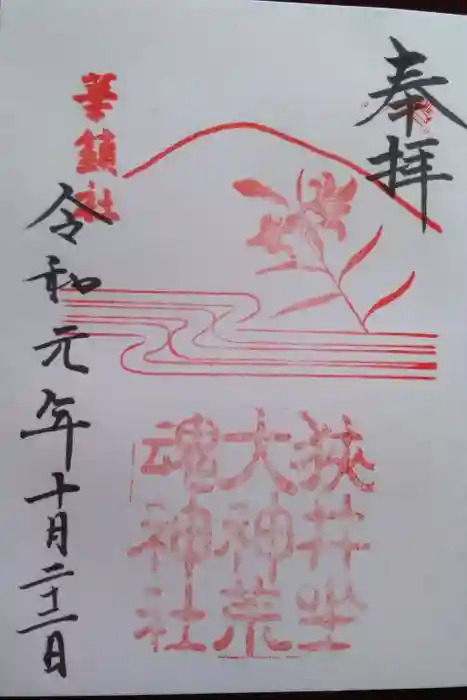 奉拝
狭井坐
大神荒
魂神社
華鎮社
令和元年十月二十二日